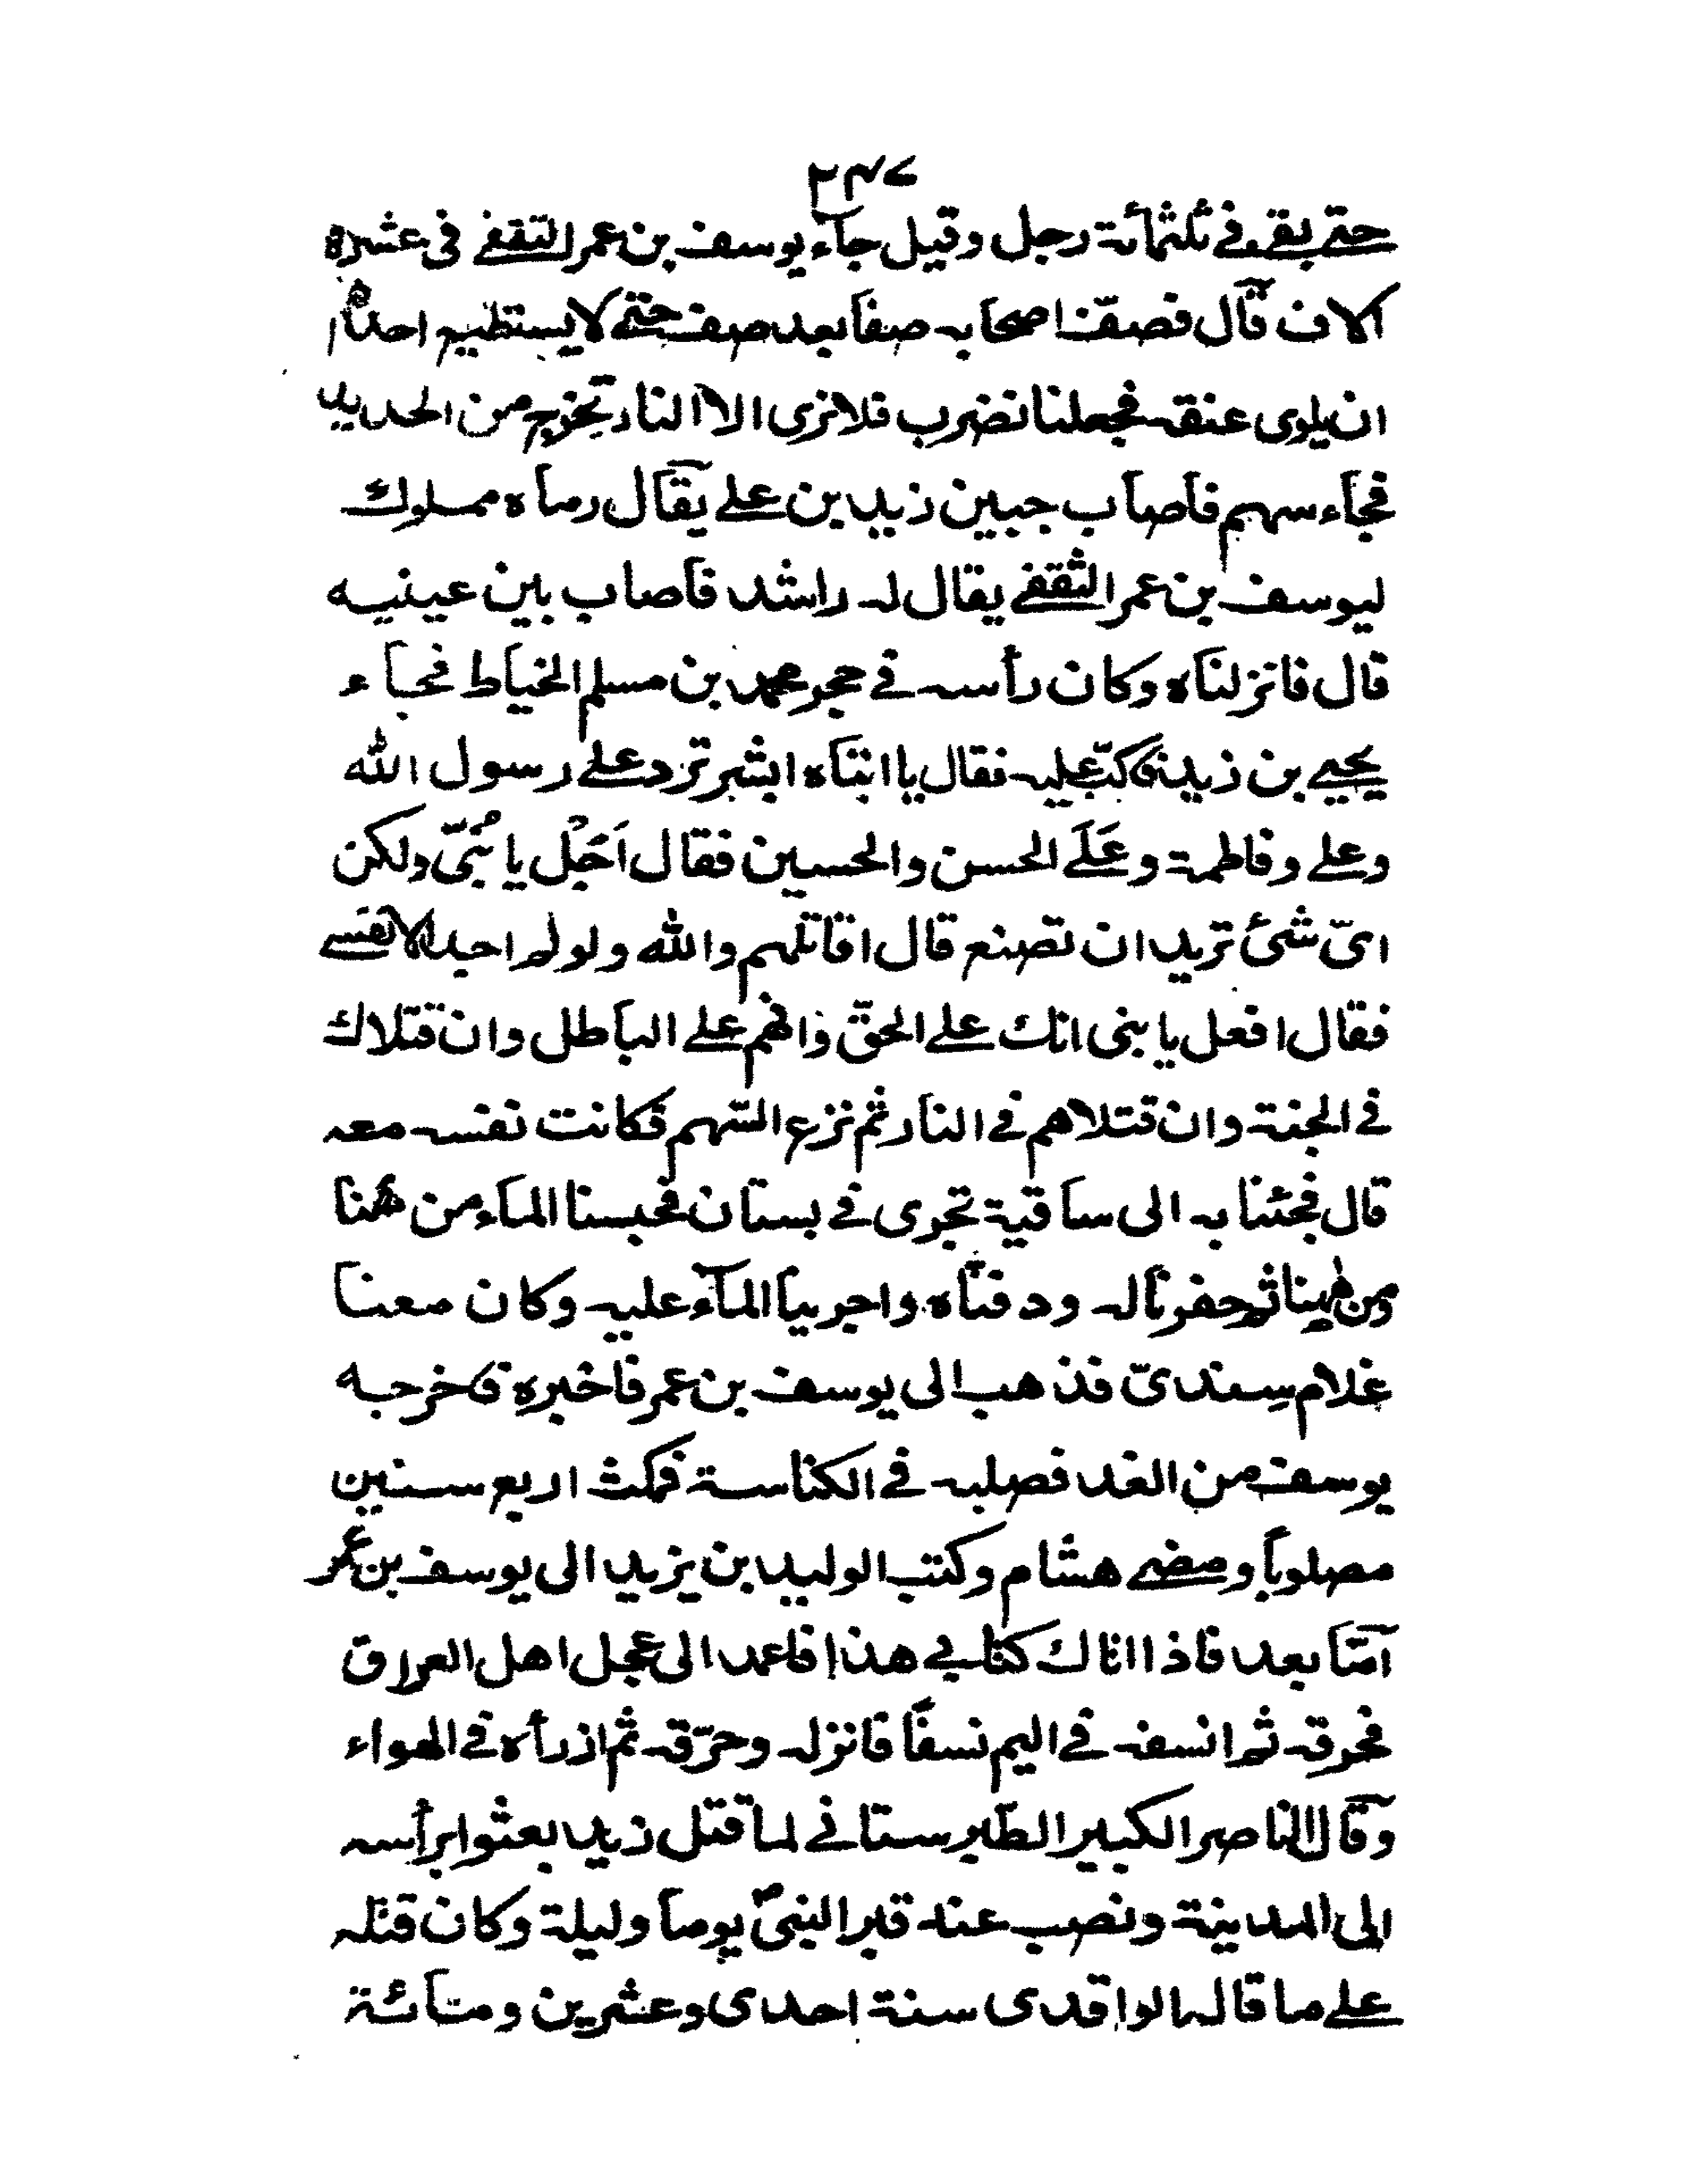 ٢٤٧
حتى بقى فى ثلثمائة رجل وقيل جاء يوسف بن عمر الثقفى فى عشرة
آلاف قال فصفّ اصحابه صفا بعد صف حتى لا يستطيع احدهم
ان يلوى عنقه فجعلنا نضرب فلا نرى الا النار تخرج من الحديد
فجاء سهم فاصاب جبين زيد بن على يقال رماه مملوك
ليوسف بن عمر الثقفى يقال له راشد فاصاب بين عينيه
قال فانزلناه وكان رأسه فى حجر محمد بن مسلم الخياط فجاء
يحيى بن زيد فاكبّ عليه فقال يا ابتاه ابشر ترد على رسول الله
وعلى وفاطمة وعَلَى الحسن والحسين فقال اَجَلْ يا بُنىّ ولكن
اىّ شئ تريد ان تصنع قال اقاتلهم والله ولو لم اجد الا نفسى
فقال افعل يا بنى انك على الحقّ وانهم على الباطل وان قتلاك
فى الجنة وان قتلاهم فى النار ثم نزع السّهم فكانت نفسه معه
قال فجئنا به الى ساقية تجرى فى بستان فحبسنا الماء من ههنا
ومن ههنا ثم حفرنا له ودفناه واجرينا الماء عليه وكان معنا
غلام سِندىّ فذهب الى يوسف بن عمر فاخبره فاخرجه
يوسف من الغد فصلبه فى الكناسة فمكث اربع سنين
مصلوباً ومضى هشام وكتب الوليد بن يزيد الى يوسف بن عمر
امّا بعد فاذا اتاك كتابى هذا فاعمد الى عجل اهل العراق
فحرقه ثم انسفه فى اليم نسفاً فانزله وحرّقه ثم اذرأه فى الهواء
وقال الناصر الكبير الطّبرستانى لما قتل زيد بعثوا برأسه
الى المدينة ونصب عند قبر النبىّ ص يوما وليلة وكان قتله
على ما قاله الواقدى سنة احدى وعشرين ومائة